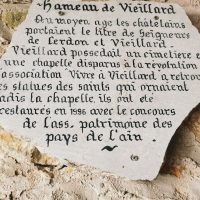 Hameau de Vieillard
Du moyen age les châtelains
portaient le titre de Seigneurs
de Cerdon et Vieillard.
Vieillard possedait un cimetiere et
une chapelle disparus à la revolution
association "Vivre à Vieillard" a retrouv
les statues des saints qui ornaient
adis la chapelle, ils ont été
restaurés en 1996 avec le concours
de l'ass. patrimoine des
pays de l'ain